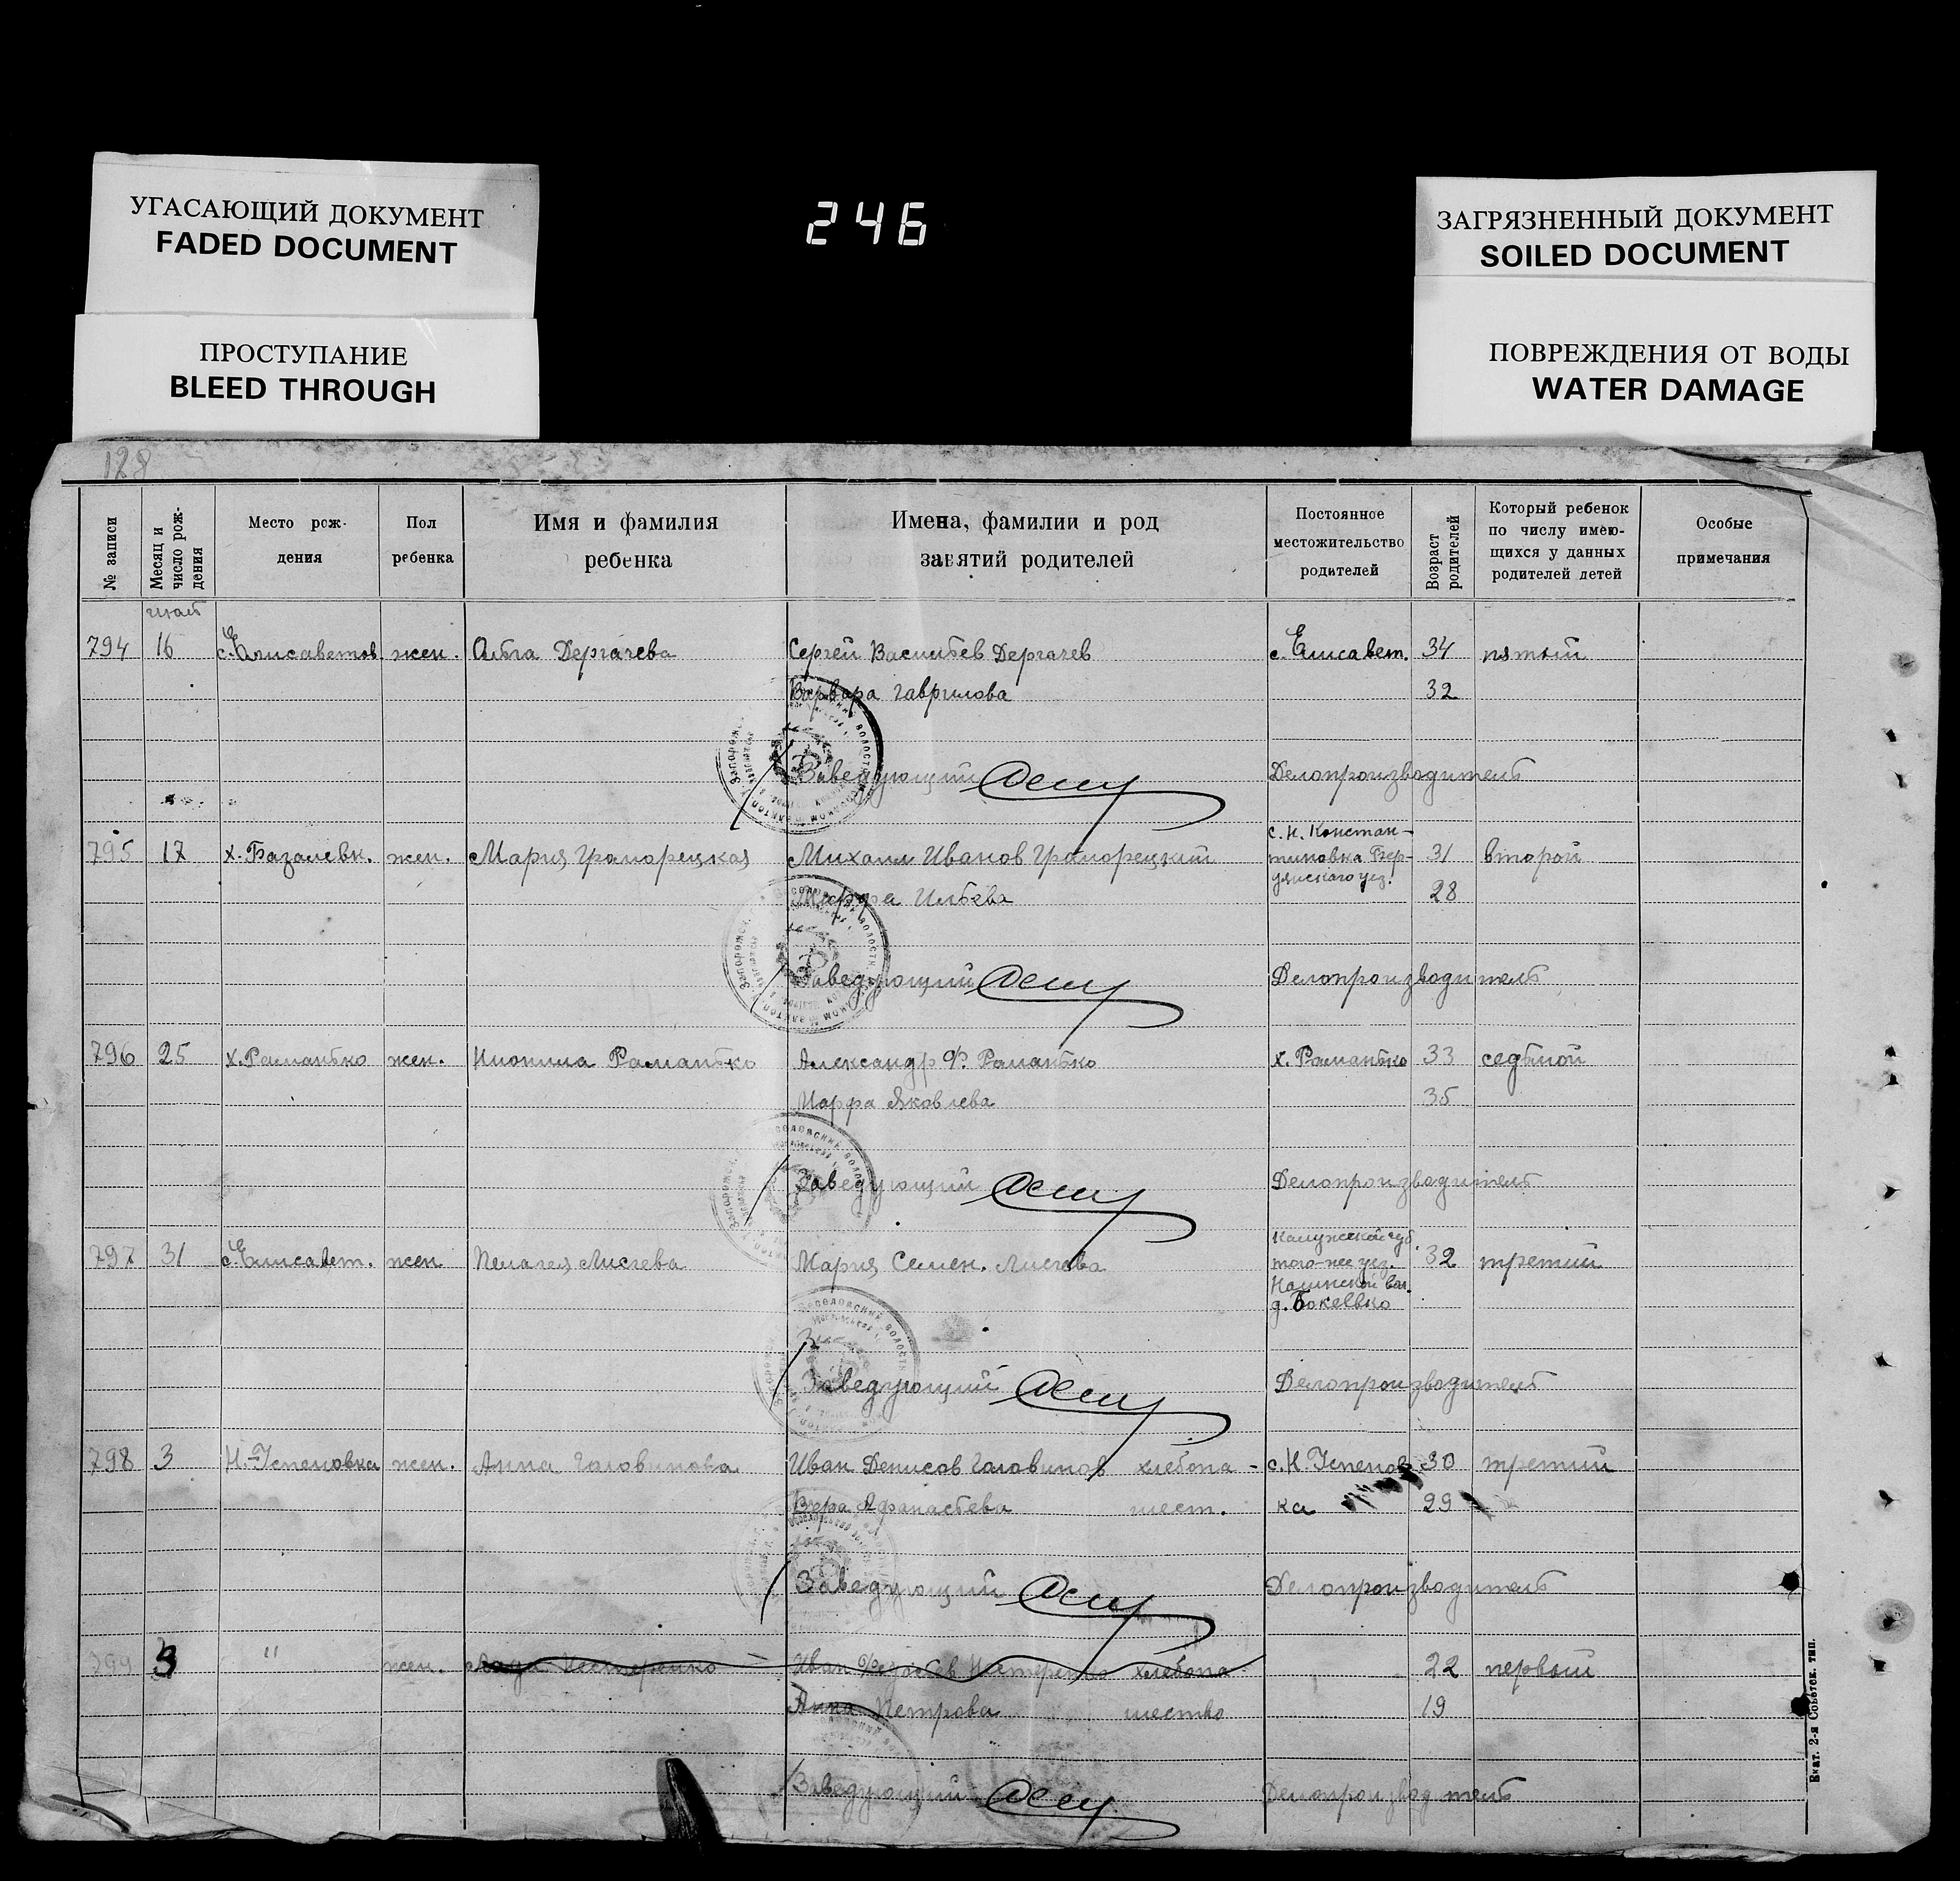 УГАСАЮЩИЙ ДОКУМЕНТ
FADED DOCUMENT
ПРОСТУПАНИЕ
BLEED THROUGH
246
ЗАГРЯЗНЕННЫЙ ДОКУМЕНТ
SOILED DOCUMENT
ПОВРЕЖДЕНИЯ ОТ ВОДЫ
WATER DAMAGE
128
№ записи
Месяц и число рождения
Место рож-
дения
Пол
ребенка
Имя и фамилия
ребенка
Имена, фамилии и род
занятий родителей
Постоянное
местожительство
родителей
Возраст
родителей
Который ребенок
по числу имею-
щихся у данных
родителей детей
Особые
примечания
794 16 с. Елисаветов. жен. Ольга Дергачева Сергей Васильев Дергачев с. Елисавет. 34 пятый
Варвара Гаврилова 32
Заведующий Делопроизводитель
795 17 х. Базалевк. жен. Мария Граморецкая Михаил Иванов Граморецкий с. Н. Констан-
тиновка Бер-
дянскаго уез. 31 второй
Марфа Ильева 28
Заведующий Делопроизводитель
796 25 х. Романько жен. Романько Александр Ф. Романько х. Романько 33 седьмой
Марфа Яковлева 35
Заведующий Делопроизводитель
797 31 с. Елисавет. жен Пелагея Лисгева Мария Семен. Лисгева Калужской губ.
того-же уез.
вол.
д. 32 третий
Заведующий Делопроизводитель
798 3 Н.-Успеновка жен. Анна Головинова Иван Денисов Головинов хлебопа- с. Н. Успенов 30 третий
Вера Афанасьева шест. ка 29
Заведующий Делопроизводитель
799 3 " жен. Нестеренко Иван Федосеев Нестеренко хлебопа 22 первый
Анна Петрова шество 19
Заведующий Делопроизводитель
Екат. 2-я Советск. тип.